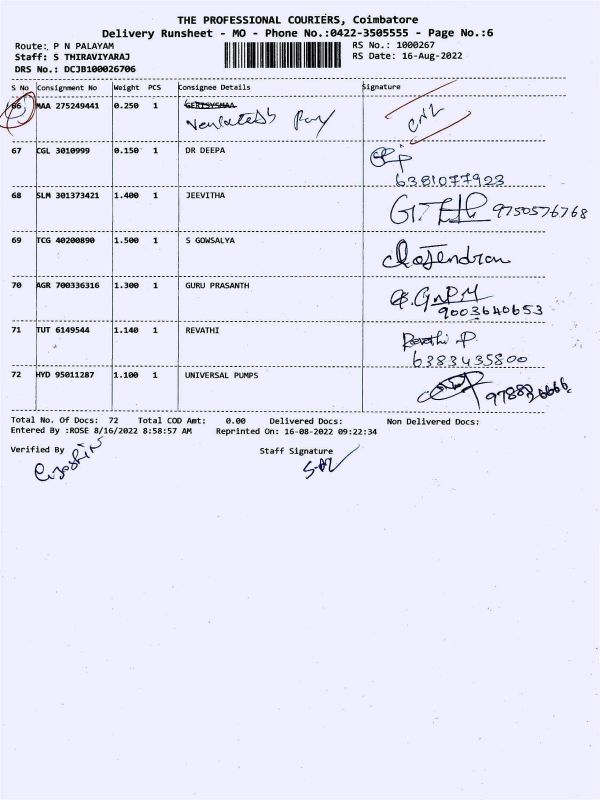 THE PROFESSIONAL COURIERS, Coimbatore
Delivery Runsheet - MO - Phone No.:0422-3505555 - Page No.:6
Route: P N PALAYAM RS No.: 1000267
Staff: S THIRAVIYARAJ RS Date: 16-Aug-2022
DRS No.: DCJB100026706
S No Consignment No Weight PCS Consignee Details Signature
66 MAA 275249441 0.250 1
67 CGL 3010999 0.150 1 DR DEEPA
6381077923
68 SLM 301373421 1.400 1 JEEVITHA 9750576768
69 TCG 40200890 1.500 1 S GOWSALYA
70 AGR 700336316 1.300 1 GURU PRASANTH
9003640653
71 TUT 6149544 1.140 1 REVATHI Revathi P.
6383435800
72 HYD 95011287 1.100 1 UNIVERSAL PUMPS
Total No. Of Docs: 72 Total COD Amt: 0.00 Delivered Docs: Non Delivered Docs:
Entered By :ROSE 8/16/2022 8:58:57 AM Reprinted On: 16-08-2022 09:22:34
Verified By Staff Signature